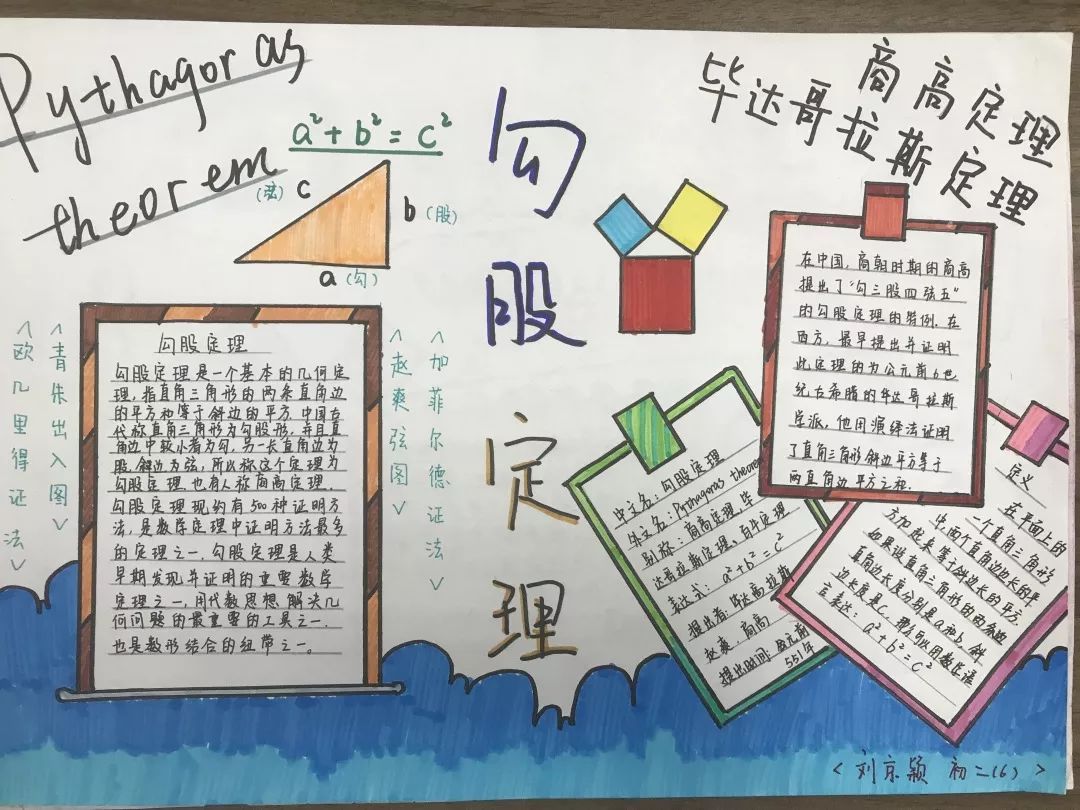 Pythagoras
theorem
a²+b²=c²
(弦) c
b (股)
a (勾)
勾股定理
商高定理
毕达哥拉斯定理
<欧几里得证法>
<青朱出入图>
勾股定理
勾股定理是一个基本的几何定
理,指直角三角形的两条直角边
的平方和等于斜边的平方.中国古
代称直角三角形为勾股形,并且直
角边中较小者为勾,另一长直角边为
股,斜边为弦,所以称这个定理为
勾股定理,也有人称商高定理.
勾股定理现约有500种证明方
法,是数学定理中证明方法最多
的定理之一.勾股定理是人类
早期发现并证明的重要数学
定理之一,用代数思想解决几
何问题的最重要的工具之一,
也是数形结合的纽带之一。
<赵爽弦图>
<加菲尔德证法>
在中国,商朝时期的商高
提出了“勾三股四弦五”
的勾股定理的特例.在
西方,最早提出并证明
此定理的为公元前6世
纪古希腊的毕达哥拉斯
学派,他用演绎法证明
了直角三角形斜边平方等于
两直角边平方之和.
中文名:勾股定理
外文名:Pythagoras theorem
别称:商高定理、毕
达哥拉斯定理、百牛定理
表达式:a²+b²=c²
提出者:毕达哥拉斯
赵爽,商高
提出时间:公元前
551年
定义
在平面上的
一个直角三角形
中,两个直角边边长的平
方加起来等于斜边长的平方.
如果设直角三角形的两条直
角边长度分别是a和b,斜
边长度是c,那么可以用数学语
言表达:a²+b²=c²
<刘京颖 初二(6)>